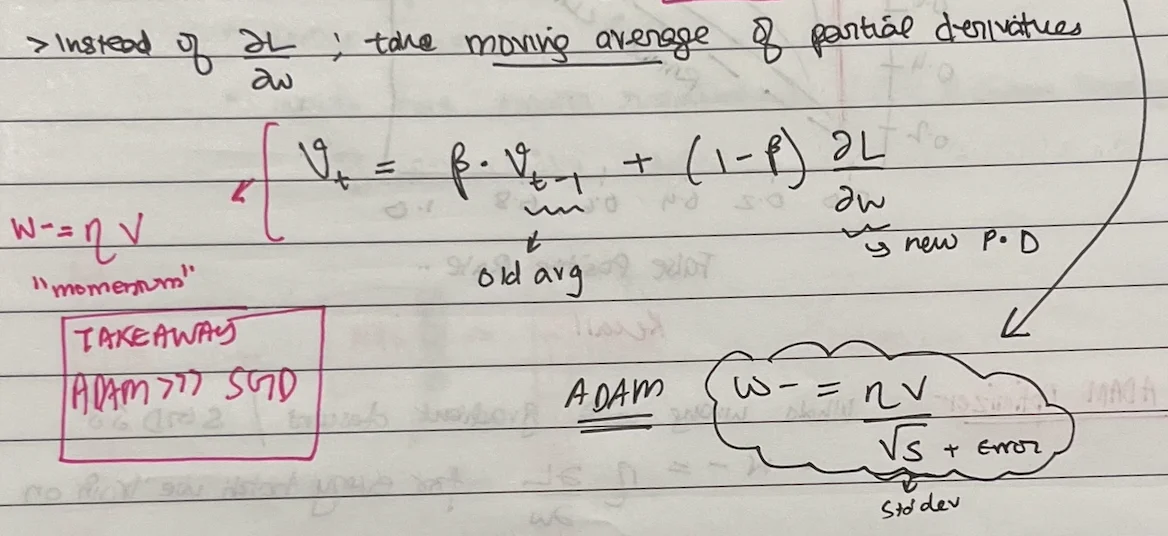 > Instead of ∂L/∂w ; take moving average of partial derivatives
V_t = β · V_{t-1} + (1-β) ∂L/∂w
old avg
new P.D
w -= η V
"momentum"
TAKEAWAY
ADAM >>> SGD
ADAM
w -= ηV / √S + Error
Std dev